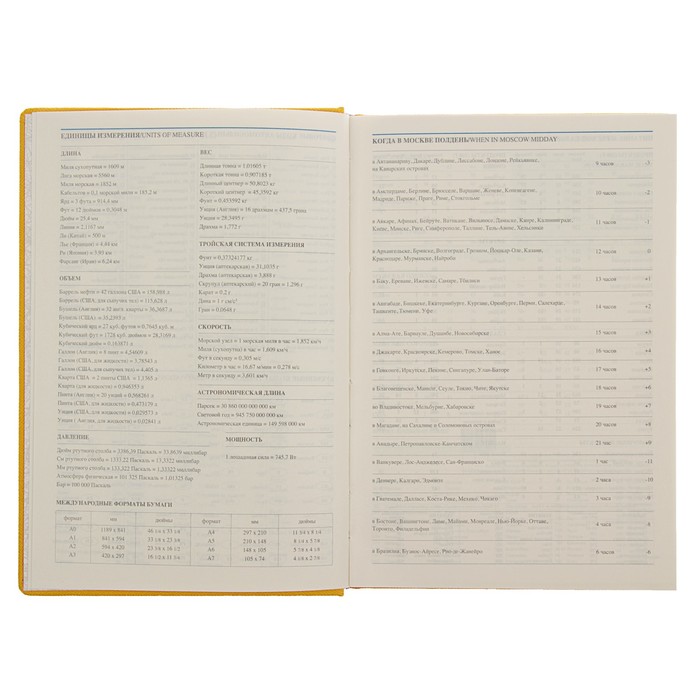 ЕДИНИЦЫ ИЗМЕРЕНИЯ/UNITS OF MEASURE
ДЛИНА
Миля сухопутная = 1609 м
Миля морская = 1852 м
Кабельтов = 0,1 морской мили = 185,2 м
Ярд = 3 фута = 914,4 мм
Фут = 12 дюймов = 0,3048 м
Дюйм = 25,4 мм
Ли (Китай) = 500 м
ОБЪЕМ
Баррель нефти = 42 галлона США = 158,988 л
Баррель (США, для сыпучих тел) = 115,628 л
Бушель (Англия) = 32 англ. кварты = 36,3687 л
Бушель (США) = 35,2393 л
Кубический ярд = 27 куб. футов = 0,7645 куб. м
Кубический фут = 1728 куб. дюймов = 28,3169 л
Кубический дюйм = 0,163871
Галлон (Англия) = 8 пинт = 4,54609 л
Галлон (США, для жидкости) = 3,78543 л
Галлон (США, для сыпучих тел) = 4,405 л
Кварта (США) = 2 пинты США = 1,1365 л
Кварта (для жидкости) = 0,946353 л
Пинта (Англия) = 20 унций = 0,568261 л
Пинта (США, для жидкости) = 0,473179 л
Унция (США, для жидкости) = 0,029573 л
Унция (Англия) = 0,02841 л
ДАВЛЕНИЕ
Дюйм ртутного столба = 3386,39 Паскаль = 33,8639 миллибар
См ртутного столба = 1333,22 Паскаль = 13,3322 миллибар
Мм ртутного столба = 133,322 Паскаль = 1,33322 миллибар
Атмосфера физическая = 101 325 Паскаль = 1,01325 бар
Бар = 100 000 Паскаль
ВЕС
Длинная тонна = 1,01605 т
Короткая тонна = 0,907185 т
Длинный центнер = 50,8023 кг
Короткий центнер = 45,3592 кг
Фунт = 0,453592 кг
Унция (Англия) = 16 драхмам = 437,5 грана
Унция = 28,3495 г
Драхма = 1,772 г
ТРОЙСКАЯ СИСТЕМА ИЗМЕРЕНИЯ
Фунт = 0,37324177 кг
Унция (аптекарская) = 31,1035 г
Драхма (аптекарская) = 3,888 г
Скрупул (аптекарский) = 20 гран = 1,296 г
Карат = 0,2 г
Гран = 0,0648 г
СКОРОСТЬ
Морской узел = 1 морская миля в час = 1,852 км/ч
Миля (сухопутн) в час = 1,609 км/ч
Фут в секунду = 0,305 м/с
Километр в час = 16,67 м/мин = 0,278 м/с
Метр в секунду = 3,601 км/ч
АСТРОНОМИЧЕСКАЯ ДЛИНА
Парсек = 30 860 000 000 000 км
Световой год = 945 750 000 000 км
Астрономическая единица = 149 598 000 км
МОЩНОСТЬ
1 лошадиная сила = 745,7 Вт
МЕЖДУНАРОДНЫЕ ФОРМАТЫ БУМАГИ
формат мм дюймы формат мм дюймы
A0 1189 x 841 46 3/4 x 33 1/8 A4 297 x 210 11 3/4 x 8 1/4
A1 841 x 594 33 1/8 x 23 3/8 A5 210 x 148 8 1/4 x 5 7/8
A2 594 x 420 23 3/8 x 16 1/2 A6 148 x 105 5 7/8 x 4 1/8
A3 420 x 297 16 1/2 x 11 3/4 A7 105 x 74 4 1/8 x 2 7/8
КОГДА В МОСКВЕ ПОЛДЕНЬ/WHEN IN MOSCOW MIDDAY
Дакаре, Дублине, Лиссабоне, Лондоне, Рейкьявике,
на Канарских островах 9 часов -3
в Амстердаме, Берлине, Брюсселе, Варшаве, Женеве, Копенгагене
Мадриде, Париже, Праге, Риме, Стокгольме 10 часов -2
в Анкаре, Афинах, Бейруте, Ватикане, Вильнюсе, Дамаске, Каире, Калининграде,
Киеве, Минске, Риге, Симферополе, Таллине, Тель-Авиве, Хельсинки 11 часов -1
в Архангельске, Брянске, Волгограде, Грозном, Йошкар-Оле, Казани,
Краснодаре, Мурманске, Найроби 12 часов 0
в Баку, Ереване, Ижевске, Самаре, Тбилиси 13 часов +1
в Ашгабаде, Бишкеке, Екатеринбурге, Кургане, Оренбурге, Перми, Салехарде,
Ташкенте, Тюмени, Уфе 14 часов +2
в Алма-Ате, Барнауле, Душанбе, Новосибирске 15 часов +3
в Джакарте, Красноярске, Кемерово, Томске, Ханое 16 часов +4
в Гонконге, Иркутске, Пекине, Сингапуре, Улан-Баторе 17 часов +5
в Благовещенске, Маниле, Сеуле, Токио, Чите, Якутске 18 часов +6
во Владивостоке, Мельбурне, Хабаровске 19 часов +7
в Магадане, на Сахалине и Соломоновых островах 20 часов +8
в Анадыре, Петропавловске-Камчатском 21 час +9
в Ванкувере, Лос-Анджелесе, Сан-Франциско 1 час -11
в Денвере, Калгари, Эдмонтоне 2 часа -10
в Гватемале, Далласе, Коста-Рике, Мехико, Чикаго 3 часа -9
в Бостоне, Вашингтоне, Лиме, Майами, Монреале, Нью-Йорке, Оттаве,
Торонто, Филадельфии 4 часа -8
в Бразилиа, Буэнос-Айресе, Рио-де-Жанейро 6 часов -6